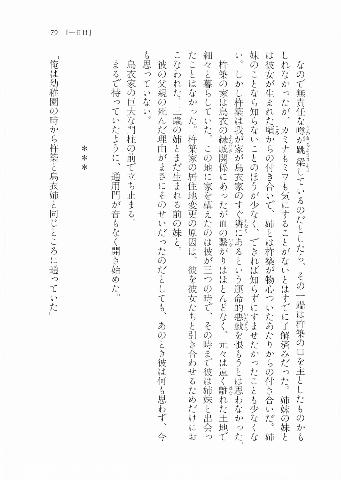 79　［一日目］
なので無責任な噂が跳梁しているのだとしたら、その一端は杵築の口を主としたものかも
しれなかったが、カミナもミワも気にすることがないとはすでに了解済みだった。姉妹の妹と
は彼女が生まれた頃からの付き合いで、姉とは杵築が物心ついたあたりからの付き合いだ。姉
妹のことなら知らないことのほうが少なく、できれば知らずにすませたかったことも少なくな
い。しかし杵築は我が家が烏衣家のすぐ隣にあるという運命的悪戯を恨もうとは思わなかった。
杵築の家は烏衣の縁戚関係にあったが血の繋がりはほとんどなく、元々は遠く離れた土地で
細々と暮らしていた。この地に家を構えたのは彼が三つの時で、その時まで彼は姉妹と出会っ
たことはなかった。杵築家の居住地変更の原因は、彼を彼女たちと引き合わせるためだけにお
こなわれた。二歳の姉とまだ生まれる前の妹と。
彼の父親の死んだ理由がまさにそのせいだったのだとしても、あのとき彼は何も思わず、今
も思っていない。
烏衣家の巨大な門柱の前で立ち止まる。
まるで待っていたように、通用門が音もなく開き始めた。
＊＊＊
「俺は幼稚園の時から杵築と烏衣姉と同じところに通っていた」